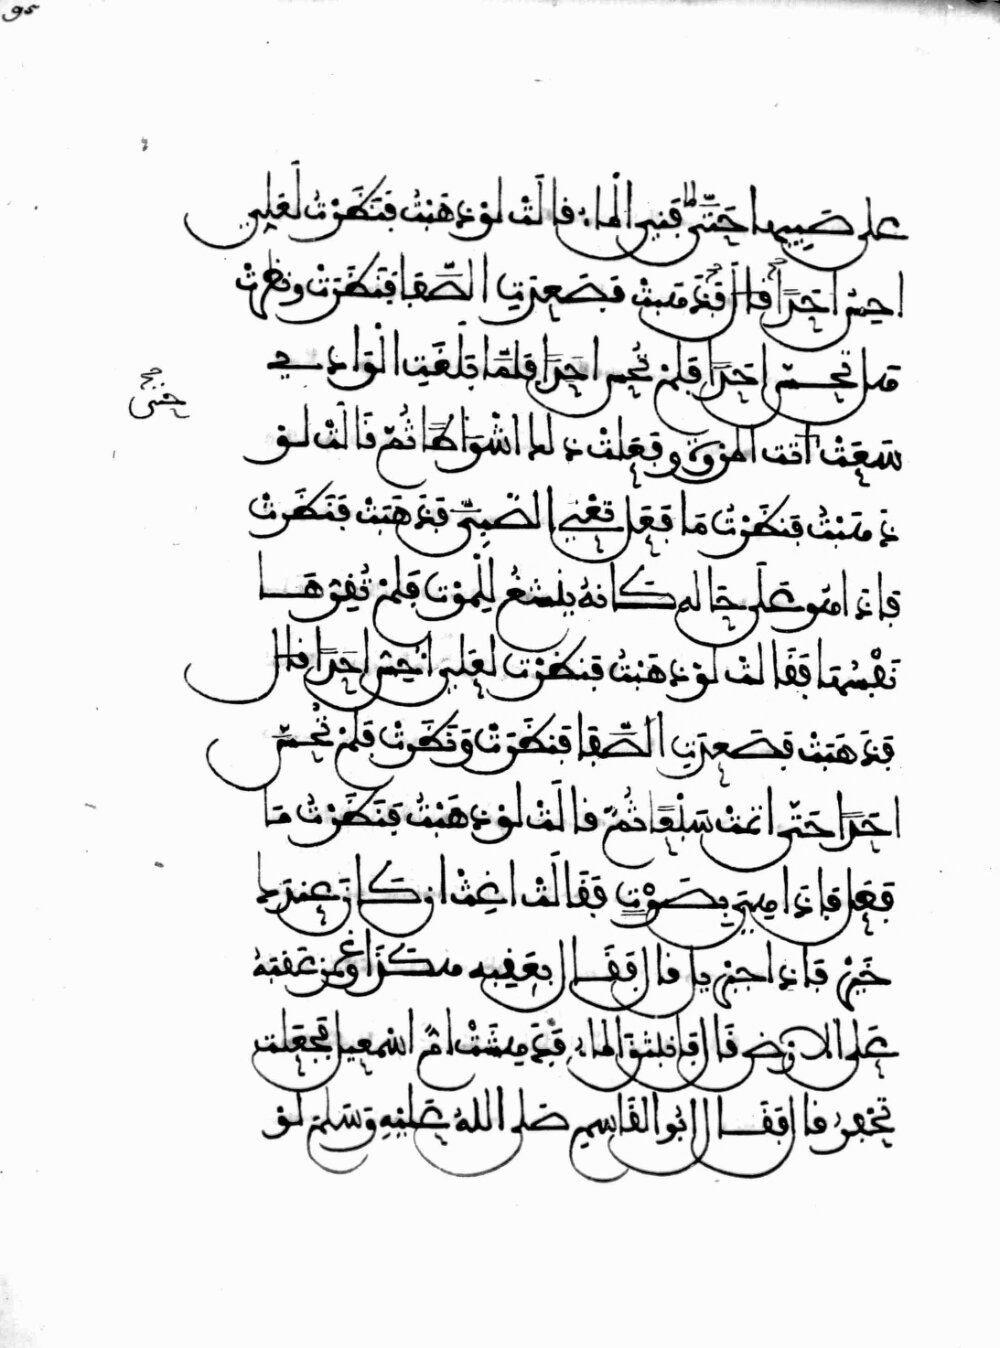 95
على صبيها حتى فني الماء قالت لو ذهبت فنظرت لعلي
احس احدا قال فذهبت فصعدت الصفا فنظرت ونظرت
هل تحس احدا فلم تحس احدا فلما بلغت الوادي
حتى
سعت اتت المروة وفعلت ذلك اشواطا ثم قالت لو
ذهبت فنظرت ما فعل تعني الصبي فذهبت فنظرت
فاذا هو على حاله كانه ينشغ للموت فلم تقرها
نفسها فقالت لو ذهبت فنظرت لعلي احس احدا قال
فذهبت فصعدت الصفا فنظرت ونظرت فلم تحس
احدا حتى اتمت سبعا ثم قالت لو ذهبت فنظرت ما
فعل فاذا هي بصوت فقالت اغث ان كان عندك
خير فاذا جبريل قال فقال بعقبه هكذا وغمز عقبه
على الارض قال فانبثق الماء فدهشت ام اسمعيل فجعلت
تحفر قال فقال ابو القاسم صلى الله عليه وسلم لو